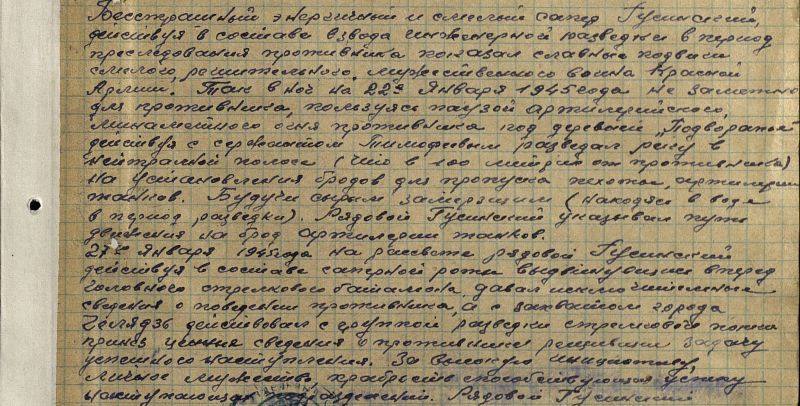 Бесстрашный энергичный и смелый сапер Гусинский,
действуя в составе взвода инженерной разведки в период
преследования противника показал славные подвиги
смелого, решительного, мужественного воина Красной
Армии. Так в ночь на 22е Января 1945 года не заметно
для противника, пользуясь паузой артилерийского,
минаметного огня противника под деревней „Подворание"
действуя с сержантом Тимофеевым разведал реку в
нейтралной полосе (что в 100 метрах от противника)
на установления бродов для пропуска пехоты, артилерии
танков. Будучи сырым замерзшим (находясь в воде
в период разведки). Рядовой Гусинский указывал пути
движения на брод артилерии танков.
27е Января 1945 года на рассвете рядовой Гусинский
действуя в составе саперной роты выдвинувшись вперед
головного стрелкового баталиона, давал исключительные
сведения о поведении противника, а с захватом города
действовал с группой разведки стрелкового полка
принес ценные сведения о противнике решившие задачу
успешного наступления. За высокую инициативу,
личное мужество, храбрость способствующая успеху
наступающих подразделений. Рядовой Гусинский